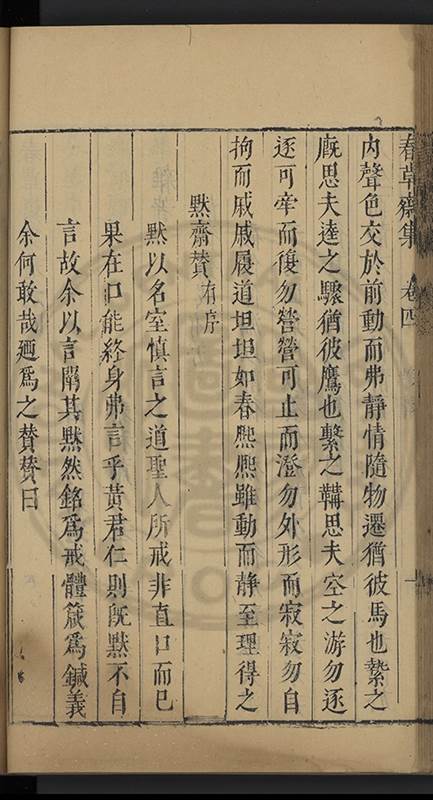 春草齋集 卷四
內聲色交於前動而弗靜情隨物遷猶彼馬也縶之
廄思夫達之驟猶彼鷹也繫之鞲思夫空之游勿逐
逐可牢而復勿營營可止而澄勿外形而寂寂勿自
拘而戚戚履道坦坦如春熙熙雖動而靜至理得之
默齋贊有序
默以名室慎言之道聖人所戒非直口而已
果在口能終身弗言乎黃君仁則旣默不自
言故余以言闡其默然銘爲戒體箴爲鍼義
余何敢哉廼爲之贊贊曰